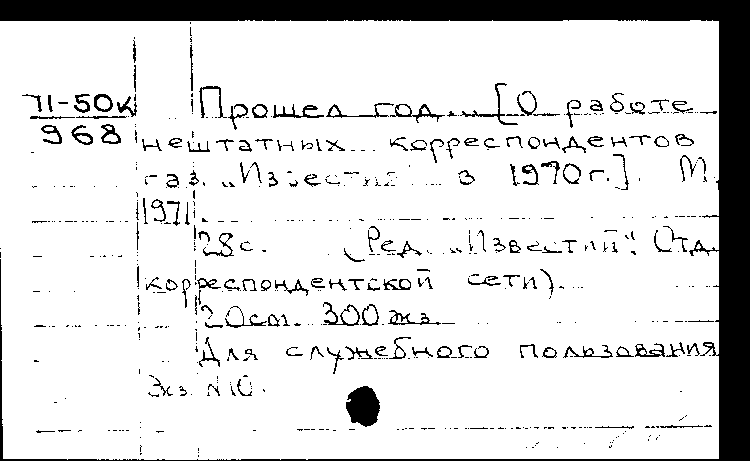 71-50к
968
Прошел год... [О работе
нештатных корреспондентов
газ. „Известия" в 1970г.]. М.,
1971.
28с. (Ред. „Известий". Отд.
корреспондентской сети).
20см. 300 экз.
Для служебного пользования
Экз. N10.